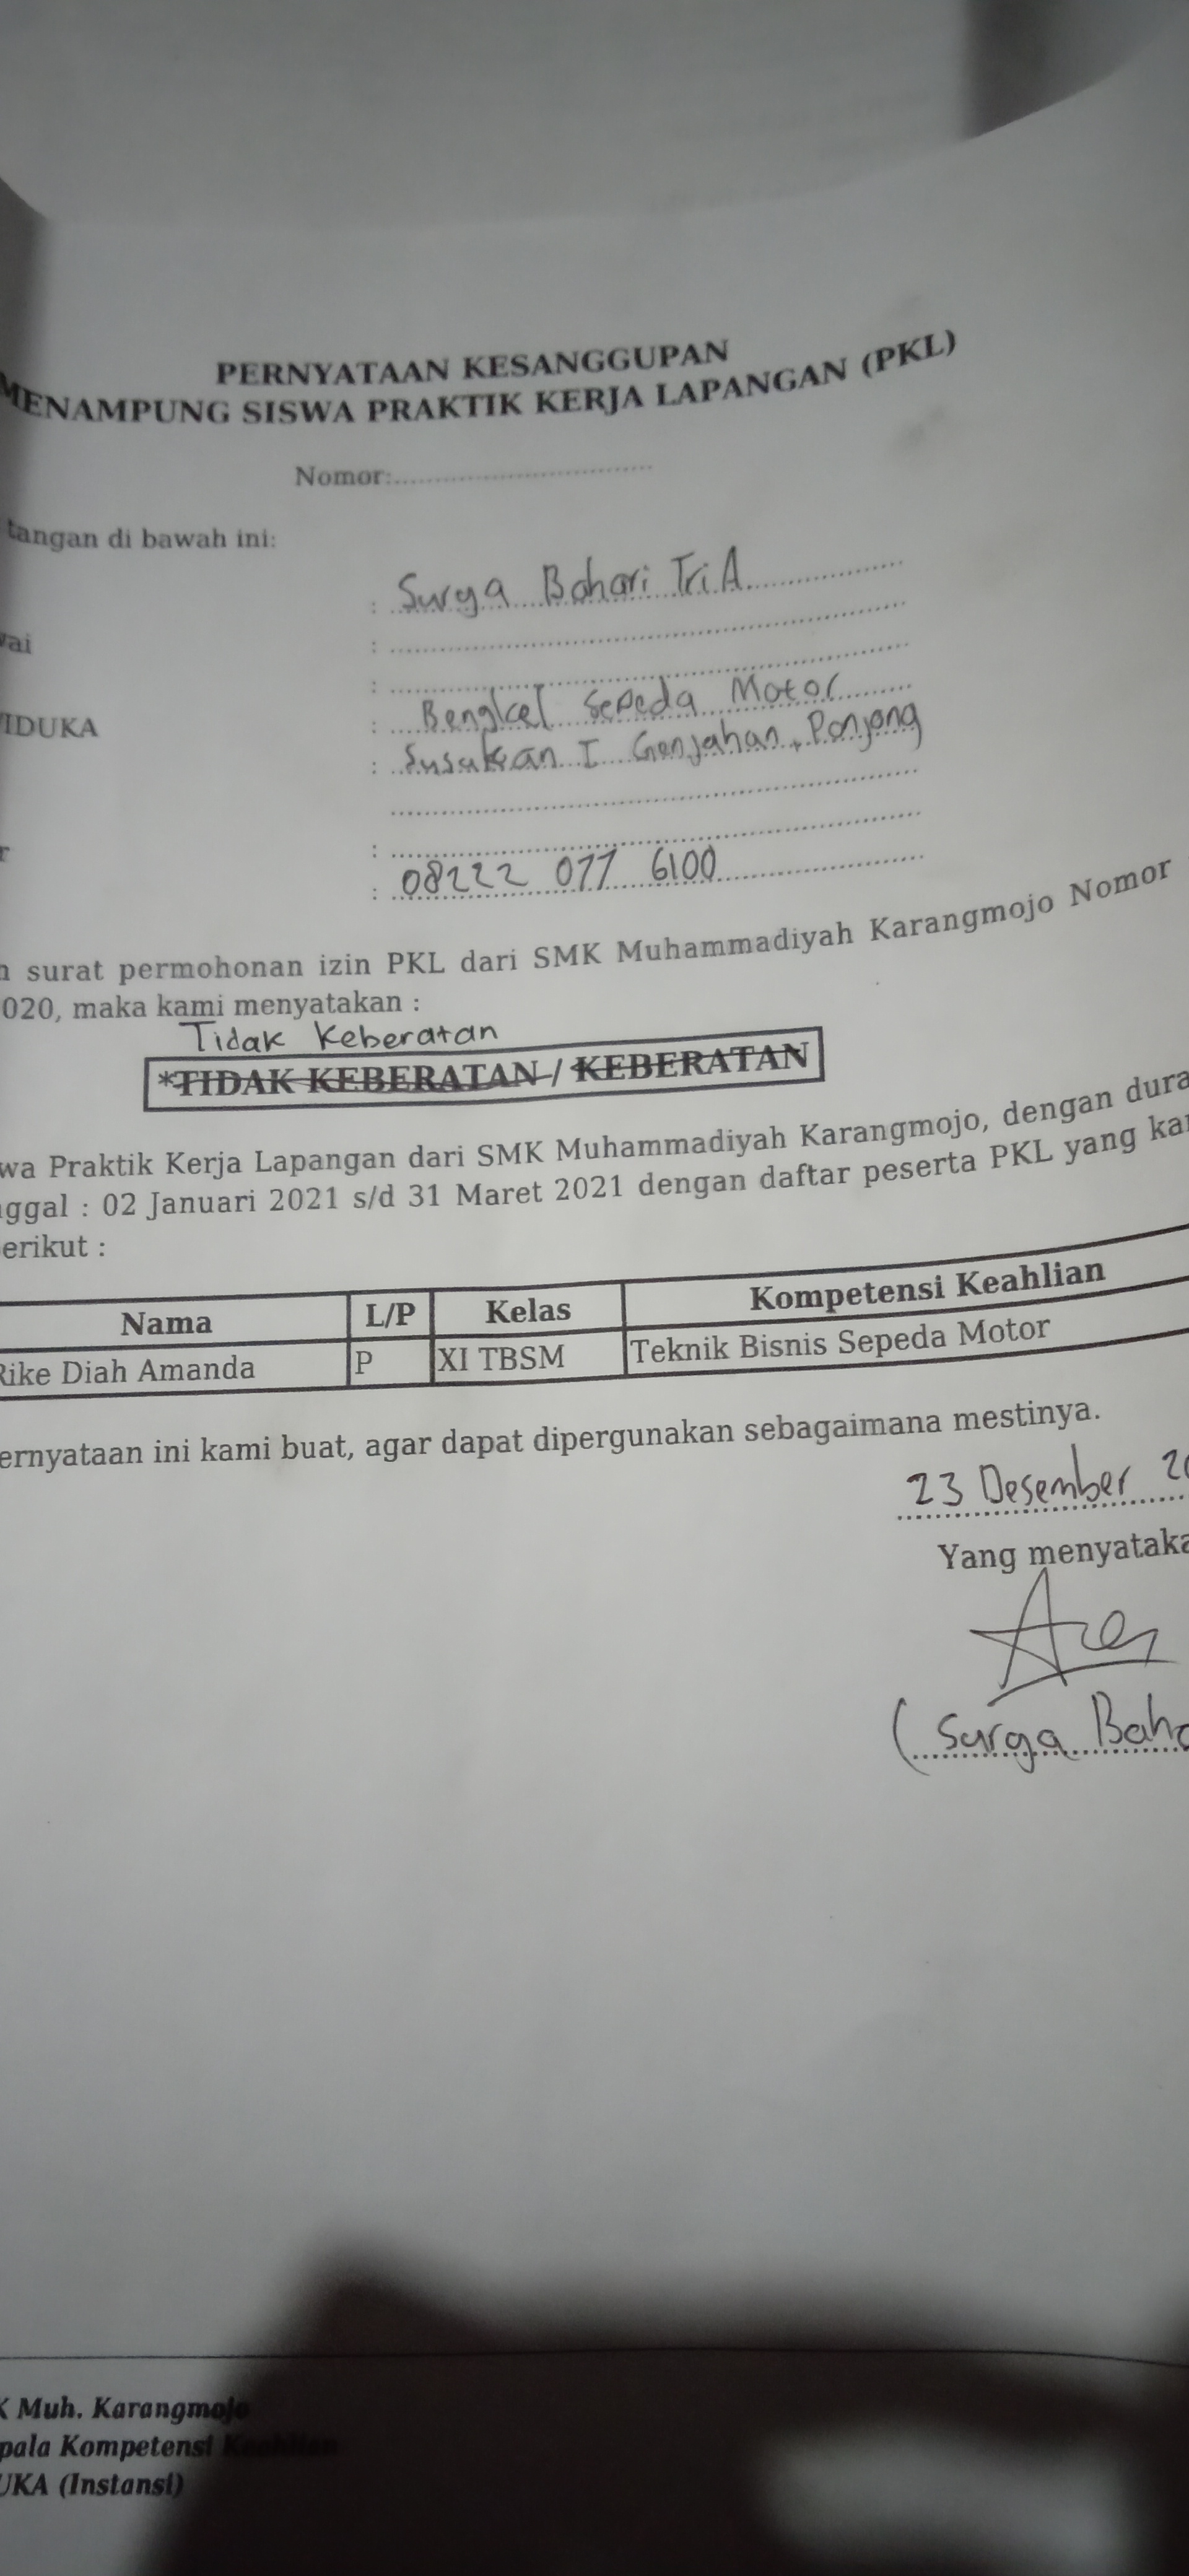 PERNYATAAN KESANGGUPAN
MENAMPUNG SISWA PRAKTIK KERJA LAPANGAN (PKL)
Nomor:..............................
tangan di bawah ini:
: Surga Bahari Tri A
vai :
:
IDUKA : Bengkel Sepeda Motor
: Susukan I Genjahan, Ponjong
r :
: 08222 077 6100
n surat permohonan izin PKL dari SMK Muhammadiyah Karangmojo Nomor
020, maka kami menyatakan :
Tidak Keberatan
*TIDAK KEBERATAN / KEBERATAN
wa Praktik Kerja Lapangan dari SMK Muhammadiyah Karangmojo, dengan dura
nggal : 02 Januari 2021 s/d 31 Maret 2021 dengan daftar peserta PKL yang ka
erikut :
Nama L/P Kelas Kompetensi Keahlian
Rike Diah Amanda P XI TBSM Teknik Bisnis Sepeda Motor
ernyataan ini kami buat, agar dapat dipergunakan sebagaimana mestinya.
23 Desember 20
Yang menyataka
(Surga Baha
K Muh. Karangmojo
pala Kompetensi Keahlian
UKA (Instansi)